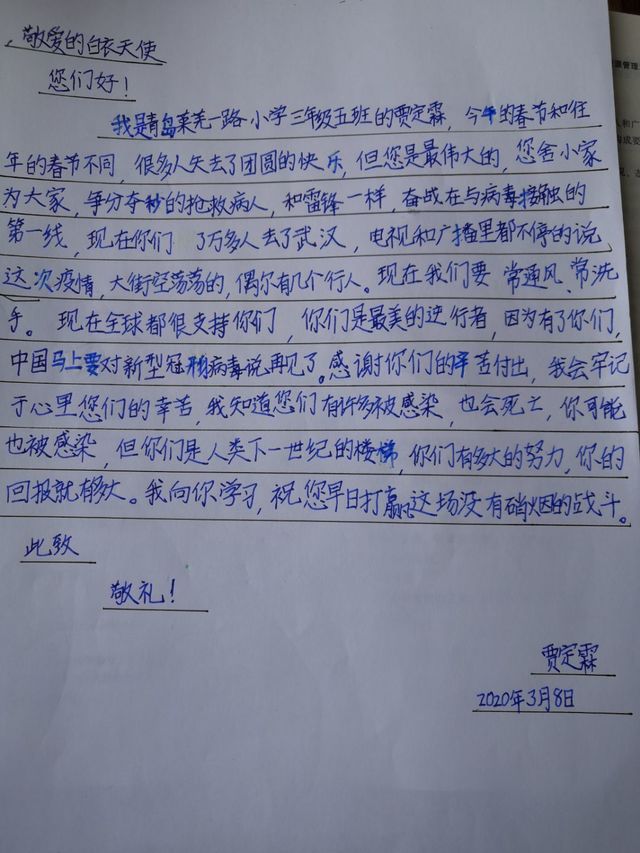 敬爱的白衣天使
您们好！
我是青岛莱芜一路小学三年级五班的贾定霖，今年的春节和往
年的春节不同，很多人失去了团圆的快乐，但您是最伟大的，您舍小家
为大家，争分夺秒的抢救病人，和雷锋一样，奋战在与病毒接触的
第一线，现在你们 了万多人去了武汉，电视和广播里都不停的说
这次疫情，大街空荡荡的，偶尔有几个行人。现在我们要 常通风、常洗
手。现在全球都很支持你们，你们是最美的逆行者，因为有了你们，
中国马上要对新型冠状病毒说再见了。感谢你们的辛苦付出，我会牢记
于心里您们的幸苦，我知道您们有许多被感染，也会死亡，你可能
也被感染，但你们是人类下一世纪的楼梯，你们有多大的努力，你的
回报就有多大。我向你学习，祝您早日打赢这场没有硝烟的战斗。
此致
敬礼！
贾定霖
2020年3月8日
管理
人和广